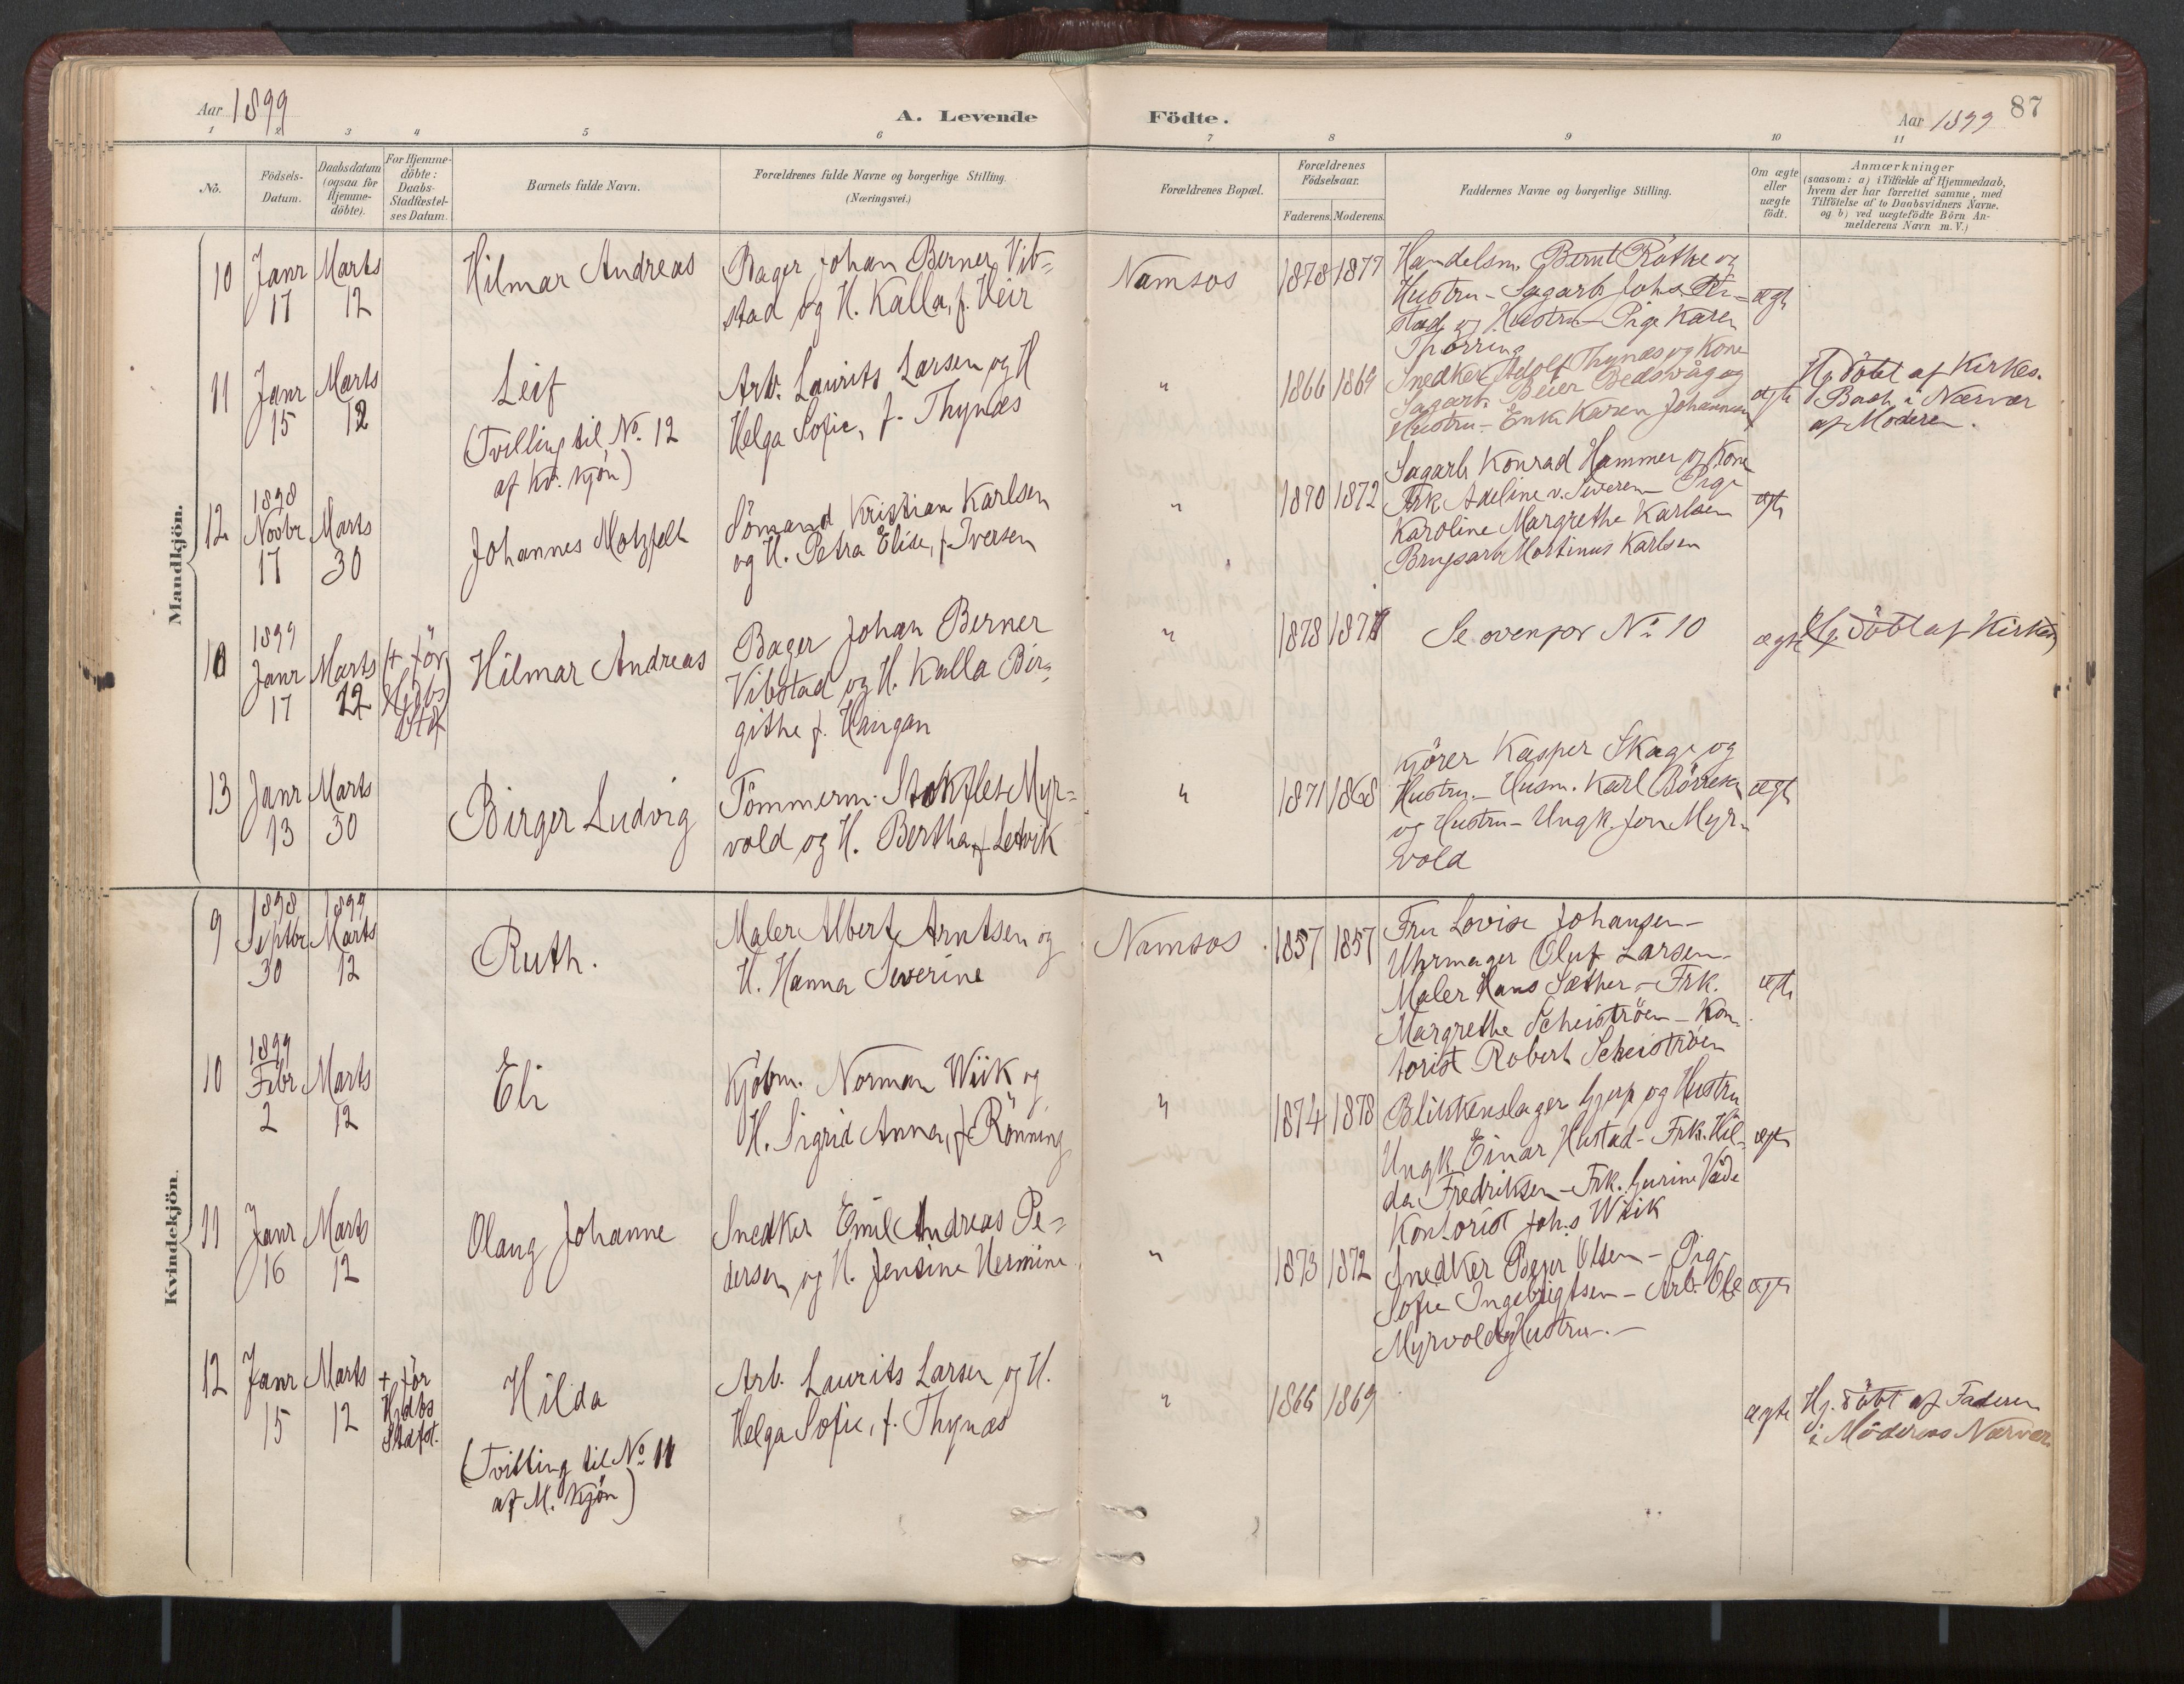 Aar 1899
A. Levende Födte.
Aar 1899
87
1 2 3 4 5 6 7 8 9 10 11
No.
Födsels-
Datum.
Daabsdatum
(ogsaa for
Hjemme-
döbte).
For Hjemme-
döbte:
Daabs-
Stadfæstel-
ses Datum.
Barnets fulde Navn.
Forældrenes fulde Navne og borgerlige Stilling.
(Næringsvei.)
Forældrenes Bopæl.
Forældrenes
Födselsaar.
Faderens. Moderens.
Faddernes Navne og borgerlige Stilling.
Om ægte
eller
uægte
födt.
Anmærkninger
(saasom: a) i Tilfælde af Hjemmedaab,
hvem der har forrettet samme, med
Tilföielse af to Daabsvidners Navne.
og b) ved uægtefödte Börn An-
melderens Navn m. V.)
Mandkjön.
10
Janr
17
Marts
12
Hilmar Andreas
Bager Johan Berner Vib=
stad og H. Kalla, f. Heir
Namsos
1878 1877
Handelsm. Bernt Röthe og
Hustru - Sagarb. Johs.
stad og Hustru - Pige Karen
Spörring
ægte
11
Janr
15
Marts
12
Leif
(Tvilling til No. 12
af Kv. Kjön)
Arb. Laurits Larsen og H
Helga Sofie, f. Thynæs
"
1866 1869
Snedker Adolf Thynæs og Kone
Sagarb. Beier Bedsvåg og
Hustru - Enke Karen Johannesen
ægte
Hj. döbt af Kirkes.
Bach i Nærvær
af Moderen.
12
1898
Novbr
17
Marts
30
Johannes Motzfelt
Sömand Kristian Karlsen
og H. Petra Elise, f. Iversen
"
1870 1872
Sagarb Konrad Hammer og Kone
Frk Adeline v. Sweren - Pige
Karoline Margrethe Karlsen
Brugsarb Martinus Karlsen
ægte
10
1899
Janr
17
Marts
12
+ för
Hjdbs
Stdf
Hilmar Andreas
Bager Johan Berner
Vibstad og H. Kalla Bir=
githe f. Haugan
"
1878 1877
Se ovenfor No. 10
ægte
Hj. döbt af Kirkes
13
Janr
13
Marts
30
Birger Ludvig
Tömmerm. Stokflet Myr=
vold og H. Bertha f. Letvik
"
1871 1868
Kjörer Kasper Skage og
Hustru. - Husm. Karl Börresen
og Hustru - Ungk. Jon Myr=
vold
ægte
Kvindekjön.
9
1898
Septbr
30
1899
Marts
12
Ruth.
Maler Albert Arntsen og
H. Hanna Severine
Namsos
1857 1857
Fru Lovise Johansen -
Uhrmager Oluf Larsen -
Maler Hans Sæther - Frk.
Margrethe Scheiströen - Kon-
torist Robert Scheiströen
ægte
10
1899
Febr
2
Marts
12
Eli
Kjöbm. Norman Wiik og
H. Sigrid Anna, f. Rönning
"
1874 1878
Blikkenslager Gjerp og Hustru
Ungk. Einar Hustad - Frk. Hil-
da Fredriksen - Frk. Gurine Vade
Kontorist Johs Wiik
ægte
11
Janr
16
Marts
12
Olaug Johanne
Snedker Emil Andreas Pe=
dersen og H. Jensine Hermine
"
1873 1872
Snedker Peder Olsen - Pige
Sofie Ingebrigtsen - Arb. Ole
Myrvold og Hustru. -
ægte
12
Janr
15
Marts
12
+ för
Hjdbs
Stadfst.
Hilda
(Tvilling til No. 11
af M. Kjön)
Arb. Laurits Larsen og H.
Helga Sofie, f. Thynæs
"
1866 1869
ægte
Hj. döbt af Faderen
i Moderens Nærvær